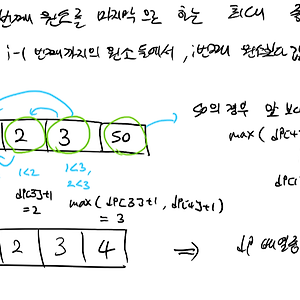 번째 원소를 마지막으로 하는 최대 증
i-1 번째까지의 원소들에서, i번째 원소보다 값
2 3 50
50의 경우 앞 보다
max ( dp[
1<2
1<3,
2<3
dp[3]+1
=2
max ( dp[3]+1, dp[4]+1)
= 3
dp[
2 3 4 ⇒ dp 배열중